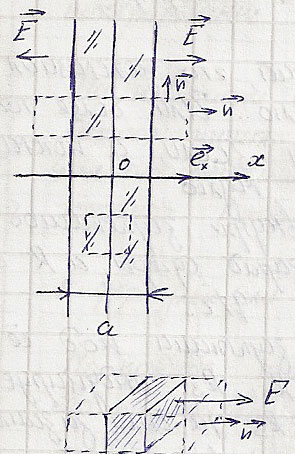 E E
n
n
o eₓ x
a
E
n